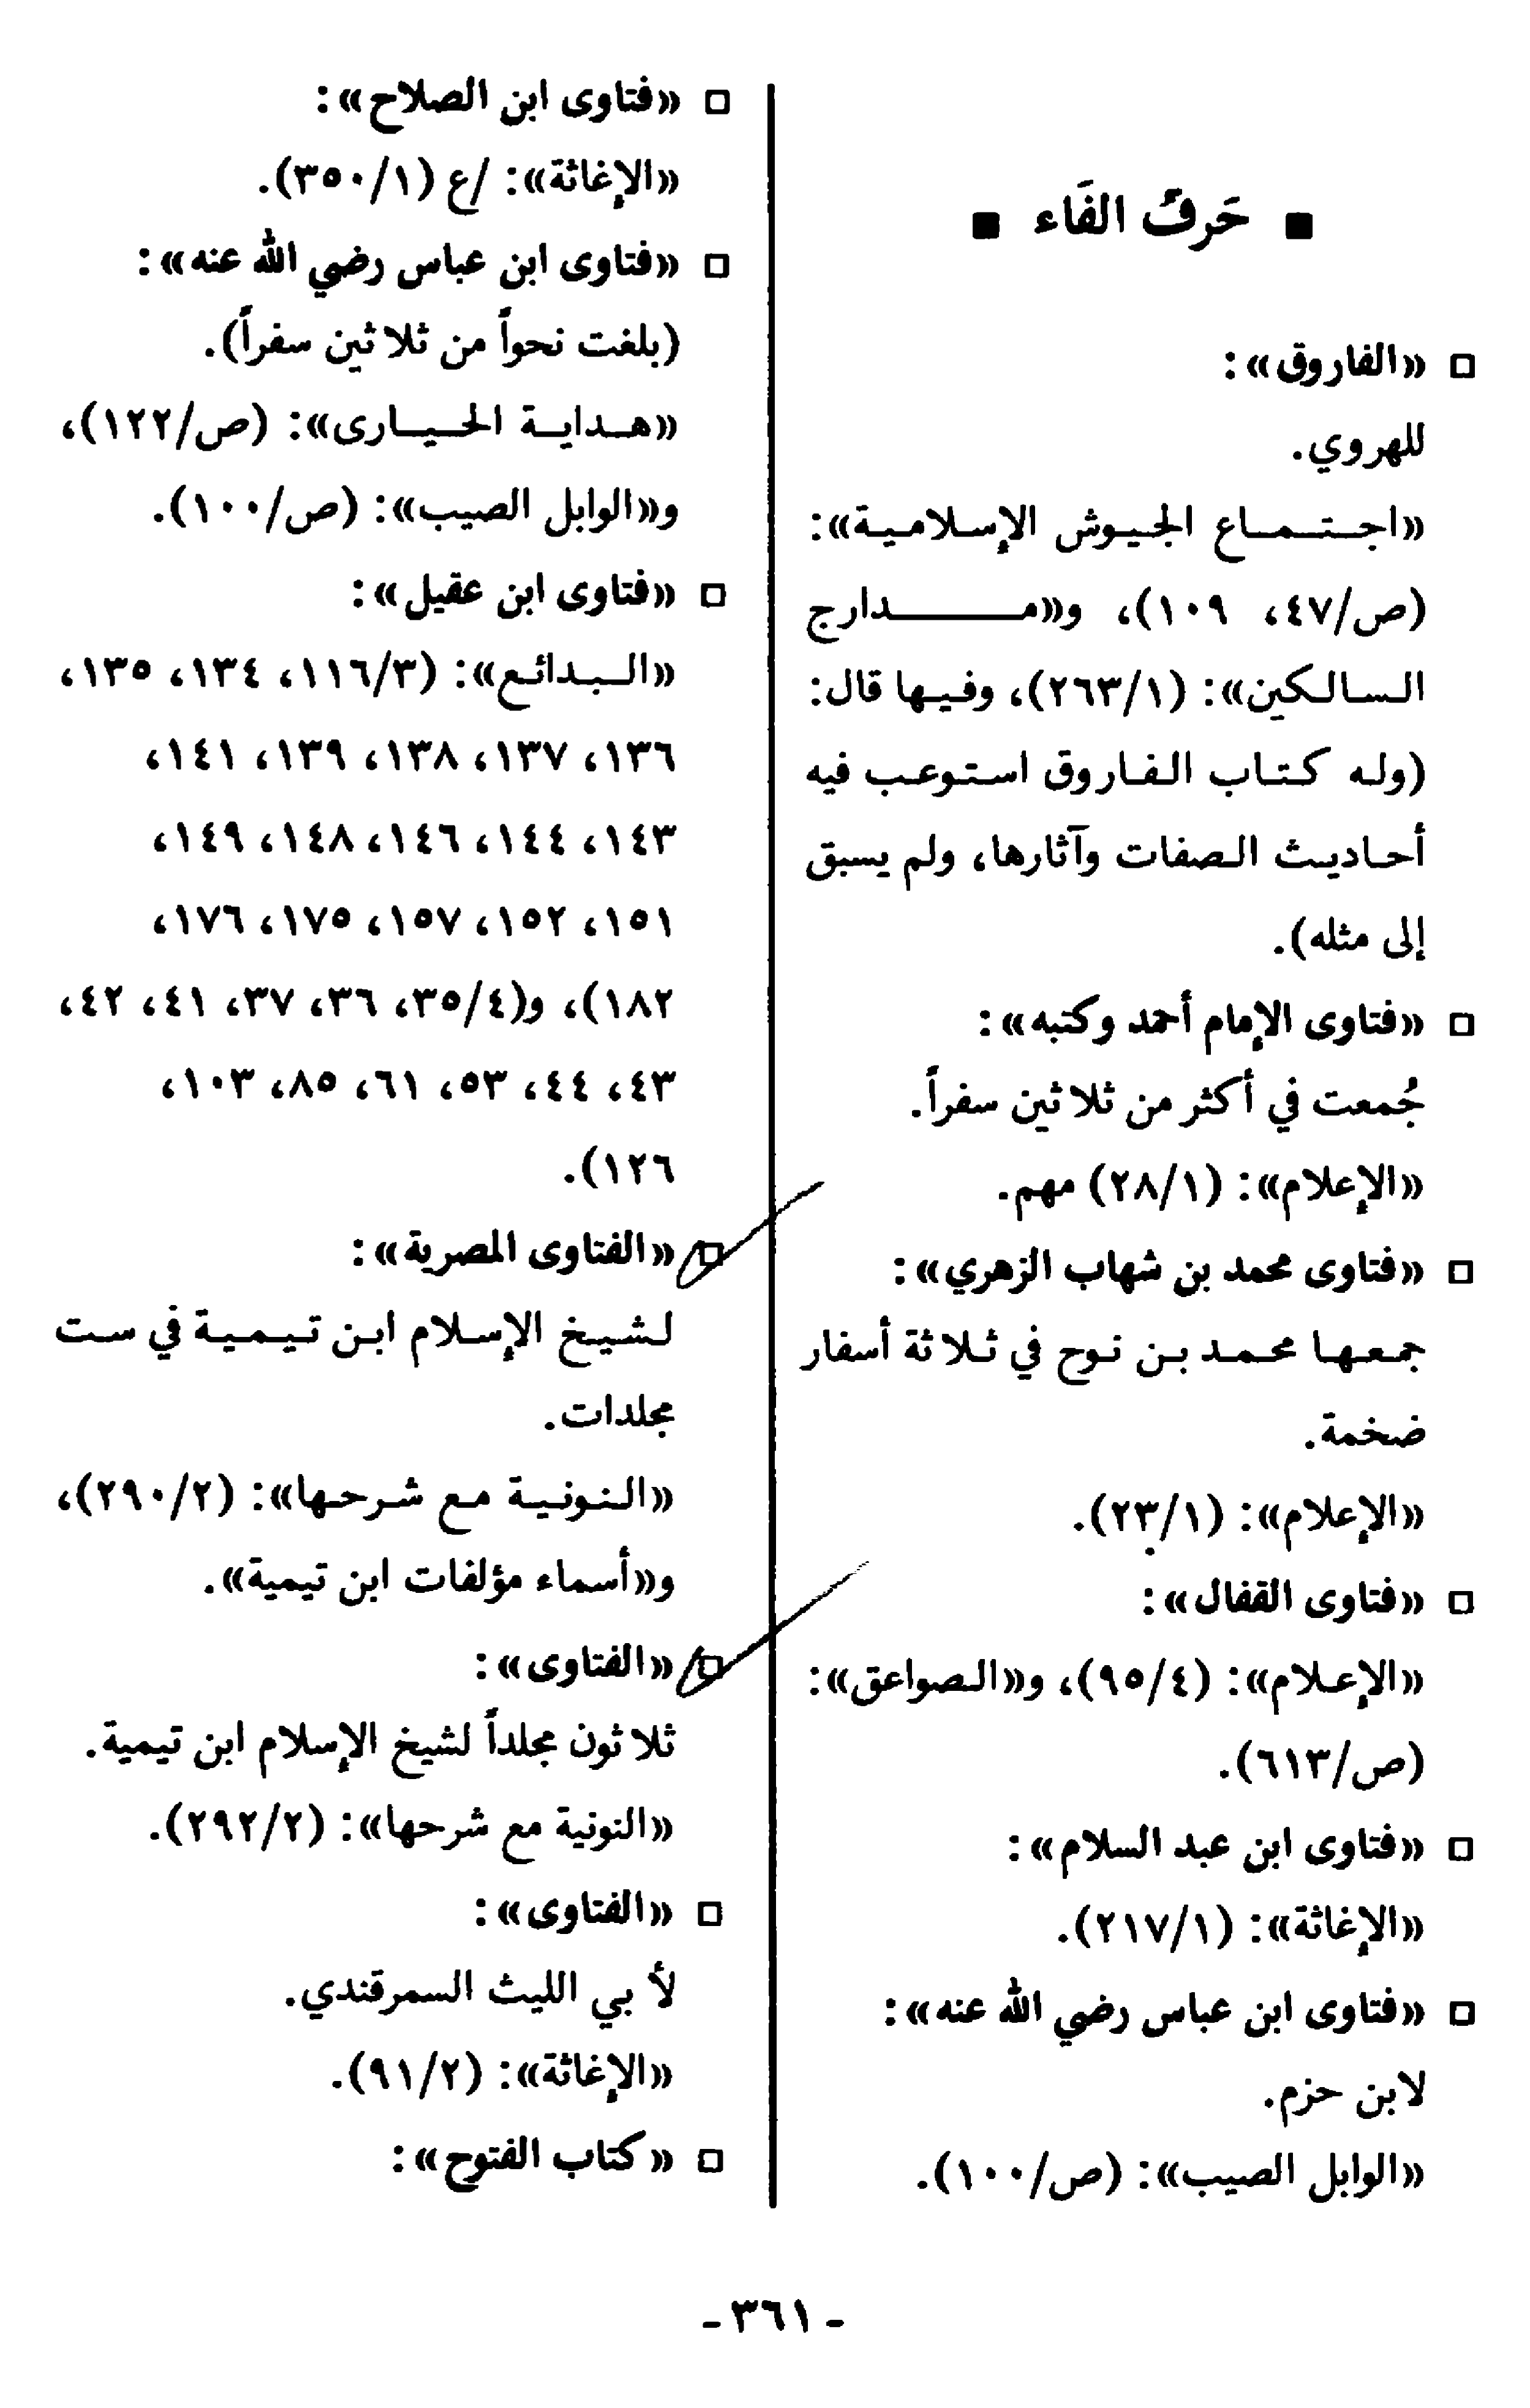 ▪ حَرفُ الفَاء ▪
□ «الفاروق»:
للهروي.
«اجتماع الجيوش الإسلامية»:
(ص/٤٧، ١٠٩)، و«مدارج
السالكين»: (٢٦٣/١)، وفيها قال:
(وله كتاب الفاروق استوعب فيه
أحاديث الصفات وآثارها، ولم يسبق
إلى مثله).
□ «فتاوى الإمام أحمد وكتبه»:
جُمعت في أكثر من ثلاثين سفراً.
«الإعلام»: (٢٨/١) مهم.
□ «فتاوى محمد بن شهاب الزهري»:
جمعها محمد بن نوح في ثلاثة أسفار
ضخمة.
«الإعلام»: (٢٣/١).
□ «فتاوى القفال»:
«الإعلام»: (٩٥/٤)، و«الصواعق»:
(ص/٦١٣).
□ «فتاوى ابن عبد السلام»:
«الإغاثة»: (٢١٧/١).
□ «فتاوى ابن عباس رضي الله عنه»:
لابن حزم.
«الوابل الصيب»: (ص/١٠٠).
□ «فتاوى ابن الصلاح»:
«الإغاثة»: /ع (٣٥٠/١).
□ «فتاوى ابن عباس رضي الله عنه»:
(بلغت نحواً من ثلاثين سفراً).
«هداية الحيارى»: (ص/١٢٢)،
و«الوابل الصيب»: (ص/١٠٠).
□ «فتاوى ابن عقيل»:
«البدائع»: (١١٦/٣، ١٣٤، ١٣٥،
١٣٦، ١٣٧، ١٣٨، ١٣٩، ١٤١،
١٤٣، ١٤٤، ١٤٦، ١٤٨، ١٤٩،
١٥١، ١٥٢، ١٥٧، ١٧٥، ١٧٦،
١٨٢)، و(٣٥/٤، ٣٦، ٣٧، ٤١، ٤٢،
٤٣، ٤٤، ٥٣، ٦١، ٨٥، ١٠٣،
١٢٦).
□ «الفتاوى المصرية»:
لشيخ الإسلام ابن تيمية في ست
مجلدات.
«النونية مع شرحها»: (٢٩٠/٢)،
و«أسماء مؤلفات ابن تيمية».
□ «الفتاوى»:
ثلاثون مجلداً لشيخ الإسلام ابن تيمية.
«النونية مع شرحها»: (٢٩٢/٢).
□ «الفتاوى»:
لأبي الليث السمرقندي.
«الإغاثة»: (٩١/٢).
□ «كتاب الفتوح»:
- ٣٦١ -